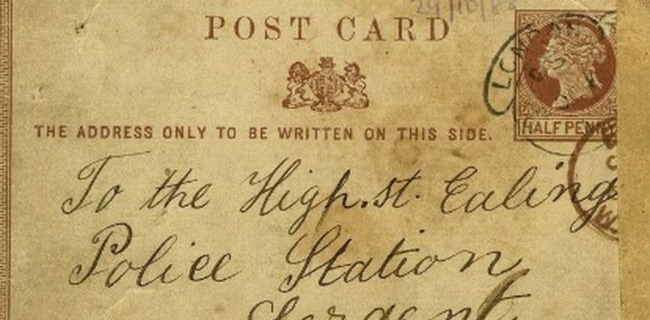 29/10/88
POST CARD
LOND
THE ADDRESS ONLY TO BE WRITTEN ON THIS SIDE.
HALF PENNY
To the High.st. Ealing
Police Station
Sergent